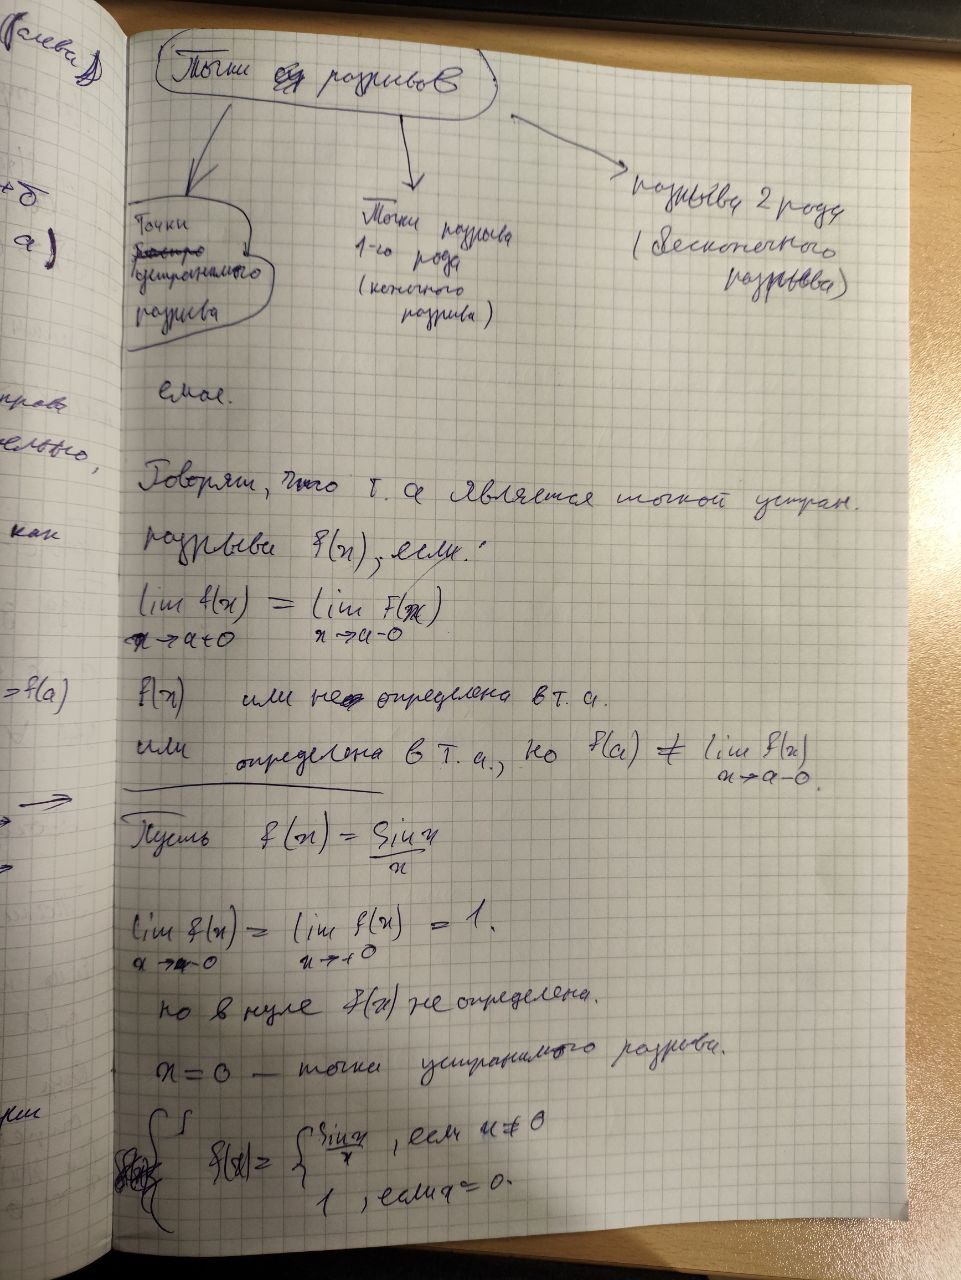 +б
а)
прове
ельно,
как
=f(a)
Точки разрывов
Точки
устранимого
разрыва
Точки разрыва
1-го рода
(конечного
разрыва)
разрыва 2 рода
(бесконечного
разрыва)
Говорят, что т. а является точкой устран.
разрыва f(x), если:
lim f(x) = lim f(x)
x→a+0 x→a-0
f(x) или не определена в т. а.
или определена в т. а., но f(a) ≠ lim f(x)
x→a-0.
Пусть f(x) = sin x
x
lim f(x) = lim f(x) = 1.
x→-0 x→+0
но в нуле f(x) не определена.
x = 0 — точка устранимого разрыва.
f(x) = { sin x / x , если x ≠ 0
1 , если x = 0.